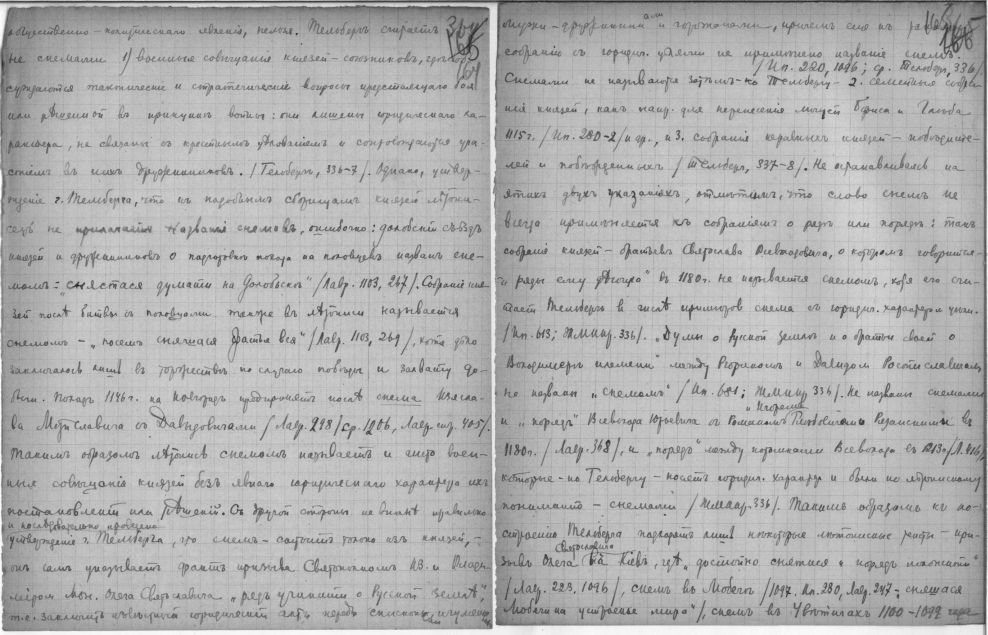 общественно-политическаго явленія, нельзя. Тельбергъ считаетъ
не снемами 1) военныя совѣщанія князей-союзниковъ, гдѣ об-
суждаются тактическіе и стратегическіе вопросы предстоящаго боя
или рѣшенной въ принципѣ войны: они лишены юридическаго ха-
рактера, не связаны съ крестнымъ цѣлованіемъ и сопровождаются уча-
стіемъ въ нихъ дружинниковъ. /Тельбергъ, 336-7/. Однако, утвер-
жденіе г. Тельберга, что къ подобнымъ сборищамъ князей лѣтопи-
сецъ не прилагалъ названія снемовъ, ошибочно: долобскій съѣздъ
князей и дружинниковъ о подготовкѣ похода на половцевъ названъ сне-
момъ: "снястася думати на Долобьскѣ" /Лавр. 1103, 267/. Собраніе кня-
зей послѣ битвы съ половцами также въ лѣтописи называется
снемомъ - "посемъ сняшася братья вся" /Лавр. 1103, 269/, хотя дѣло
заключалось лишь въ торжествѣ по случаю побѣды и захвату до-
бычи. Походъ 1146 г. на Новгородъ предпринятъ послѣ снема Изясла-
ва Мстиславича съ Давыдовичами /Лавр. 298/ ср. 1206, Лавр. стр. 405/.
Такимъ образомъ лѣтопись снемомъ называетъ и чисто воен-
ныя совѣщанія князей безъ явнаго юридическаго характера ихъ
постановленій или рѣшеній. Съ другой стороны не вполнѣ правильно
и последовательно проведено
утвержденіе г. Тельберга, что снемъ - состоитъ только изъ князей, -
онъ самъ указываетъ фактъ призыва Святополкомъ Из. и Влади-
міромъ Мон. Олега Святославича "рядъ учинити о Русской землѣ",
т.е. заключить извѣстный юридическій актъ передъ епископы, игумены
мужи - дружинники или горожанами, причемъ сіе къ
собраніе съ горожан. не примѣнено названіе снемъ.
/Ип. 220, 1096; ср. Тельберг, 336/
Снемами не называются затѣмъ - по Тельбергу - 2. семейныя собра-
нія князей, какъ напр. для перенесенія мощей Бориса и Глѣба
1115 г. /Ип. 280-2/ и др., и 3. собранія неравныхъ князей - побѣдите-
лей и побѣжденныхъ /Тельберг, 337-8/. Не останавливаясь на
этихъ двухъ указаніяхъ, отмѣтимъ, что слово снемъ не
всегда примѣняется къ собраніямъ о рядѣ или порядѣ: такъ
собраніе князей - братьевъ Святослава Всеволодовича, о которомъ говорится -
"и ряды ему " въ 1180 г. не называется снемомъ, хотя его счи-
таетъ Тельбергъ въ числѣ примѣровъ снема съ юридич. характеромъ
/Ип. 613; ЖМНПр. 336/. "Думы о Руской землѣ и о братьи своей о
Володимерѣ племени" между Рюрикомъ и Давидомъ Ростиславичами
не названы "снемомъ" /Ип. 681; ЖМНПр 336/. Не названы снемами
и "порядъ" Всеволода Юрьевича съ Романомъ и Игоремъ Глѣбовичами Рязанскими въ
1180 г. /Лавр. 368/, и "порядъ" между потомками Всеволода въ 1213 г.
которые - по Тельбергу - носятъ юридич. характеръ и были по лѣтописному
пониманію - снемами /ЖМНПр. 336/. Такимъ образомъ къ по-
строенію Тельберга подходятъ лишь нѣкоторые лѣтописные факты - при-
зывъ Олега Святославича въ Кіевъ, гдѣ, достойно снятися и порядъ положити"
/Лавр. 223, 1096/, снемъ въ Любечѣ /1097, Ип. 230, Лавр. 247 - "сняшася
Любячи на устроенье мира"/, снемъ въ Увѣтичахъ 1100 -